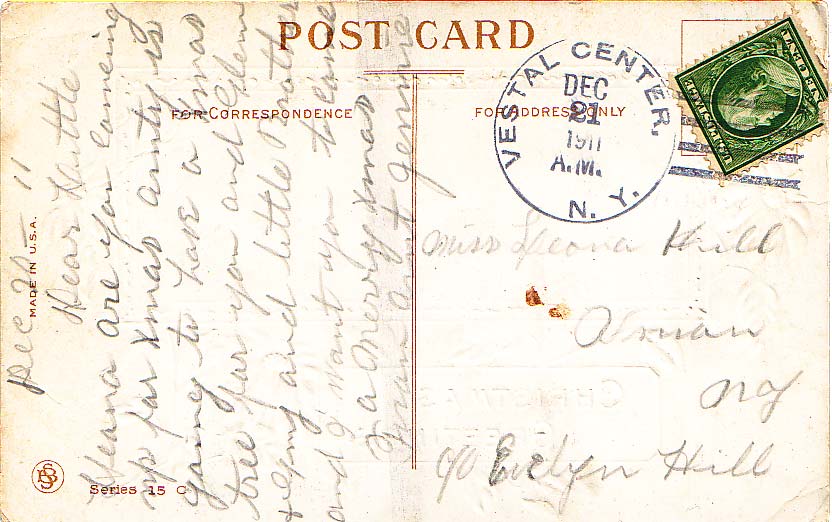 POST CARD
FOR CORRESPONDENCE
FOR ADDRESS ONLY
VESTAL CENTER, N. Y.
DEC
21
1911
A.M.
Dec 20 - 11
Dear Little
Leona are you comeing
up for Xmas aunty is
going to have a Xmas
tree for you and Glenn
and little Brother
and I want you to come
a Merry Xmas
From Aunt Jennie
Miss Leona Hill
NY
c/o Evelyn Hill
MADE IN U.S.A.
Series 15 C
CHRISTMAS
GREETING